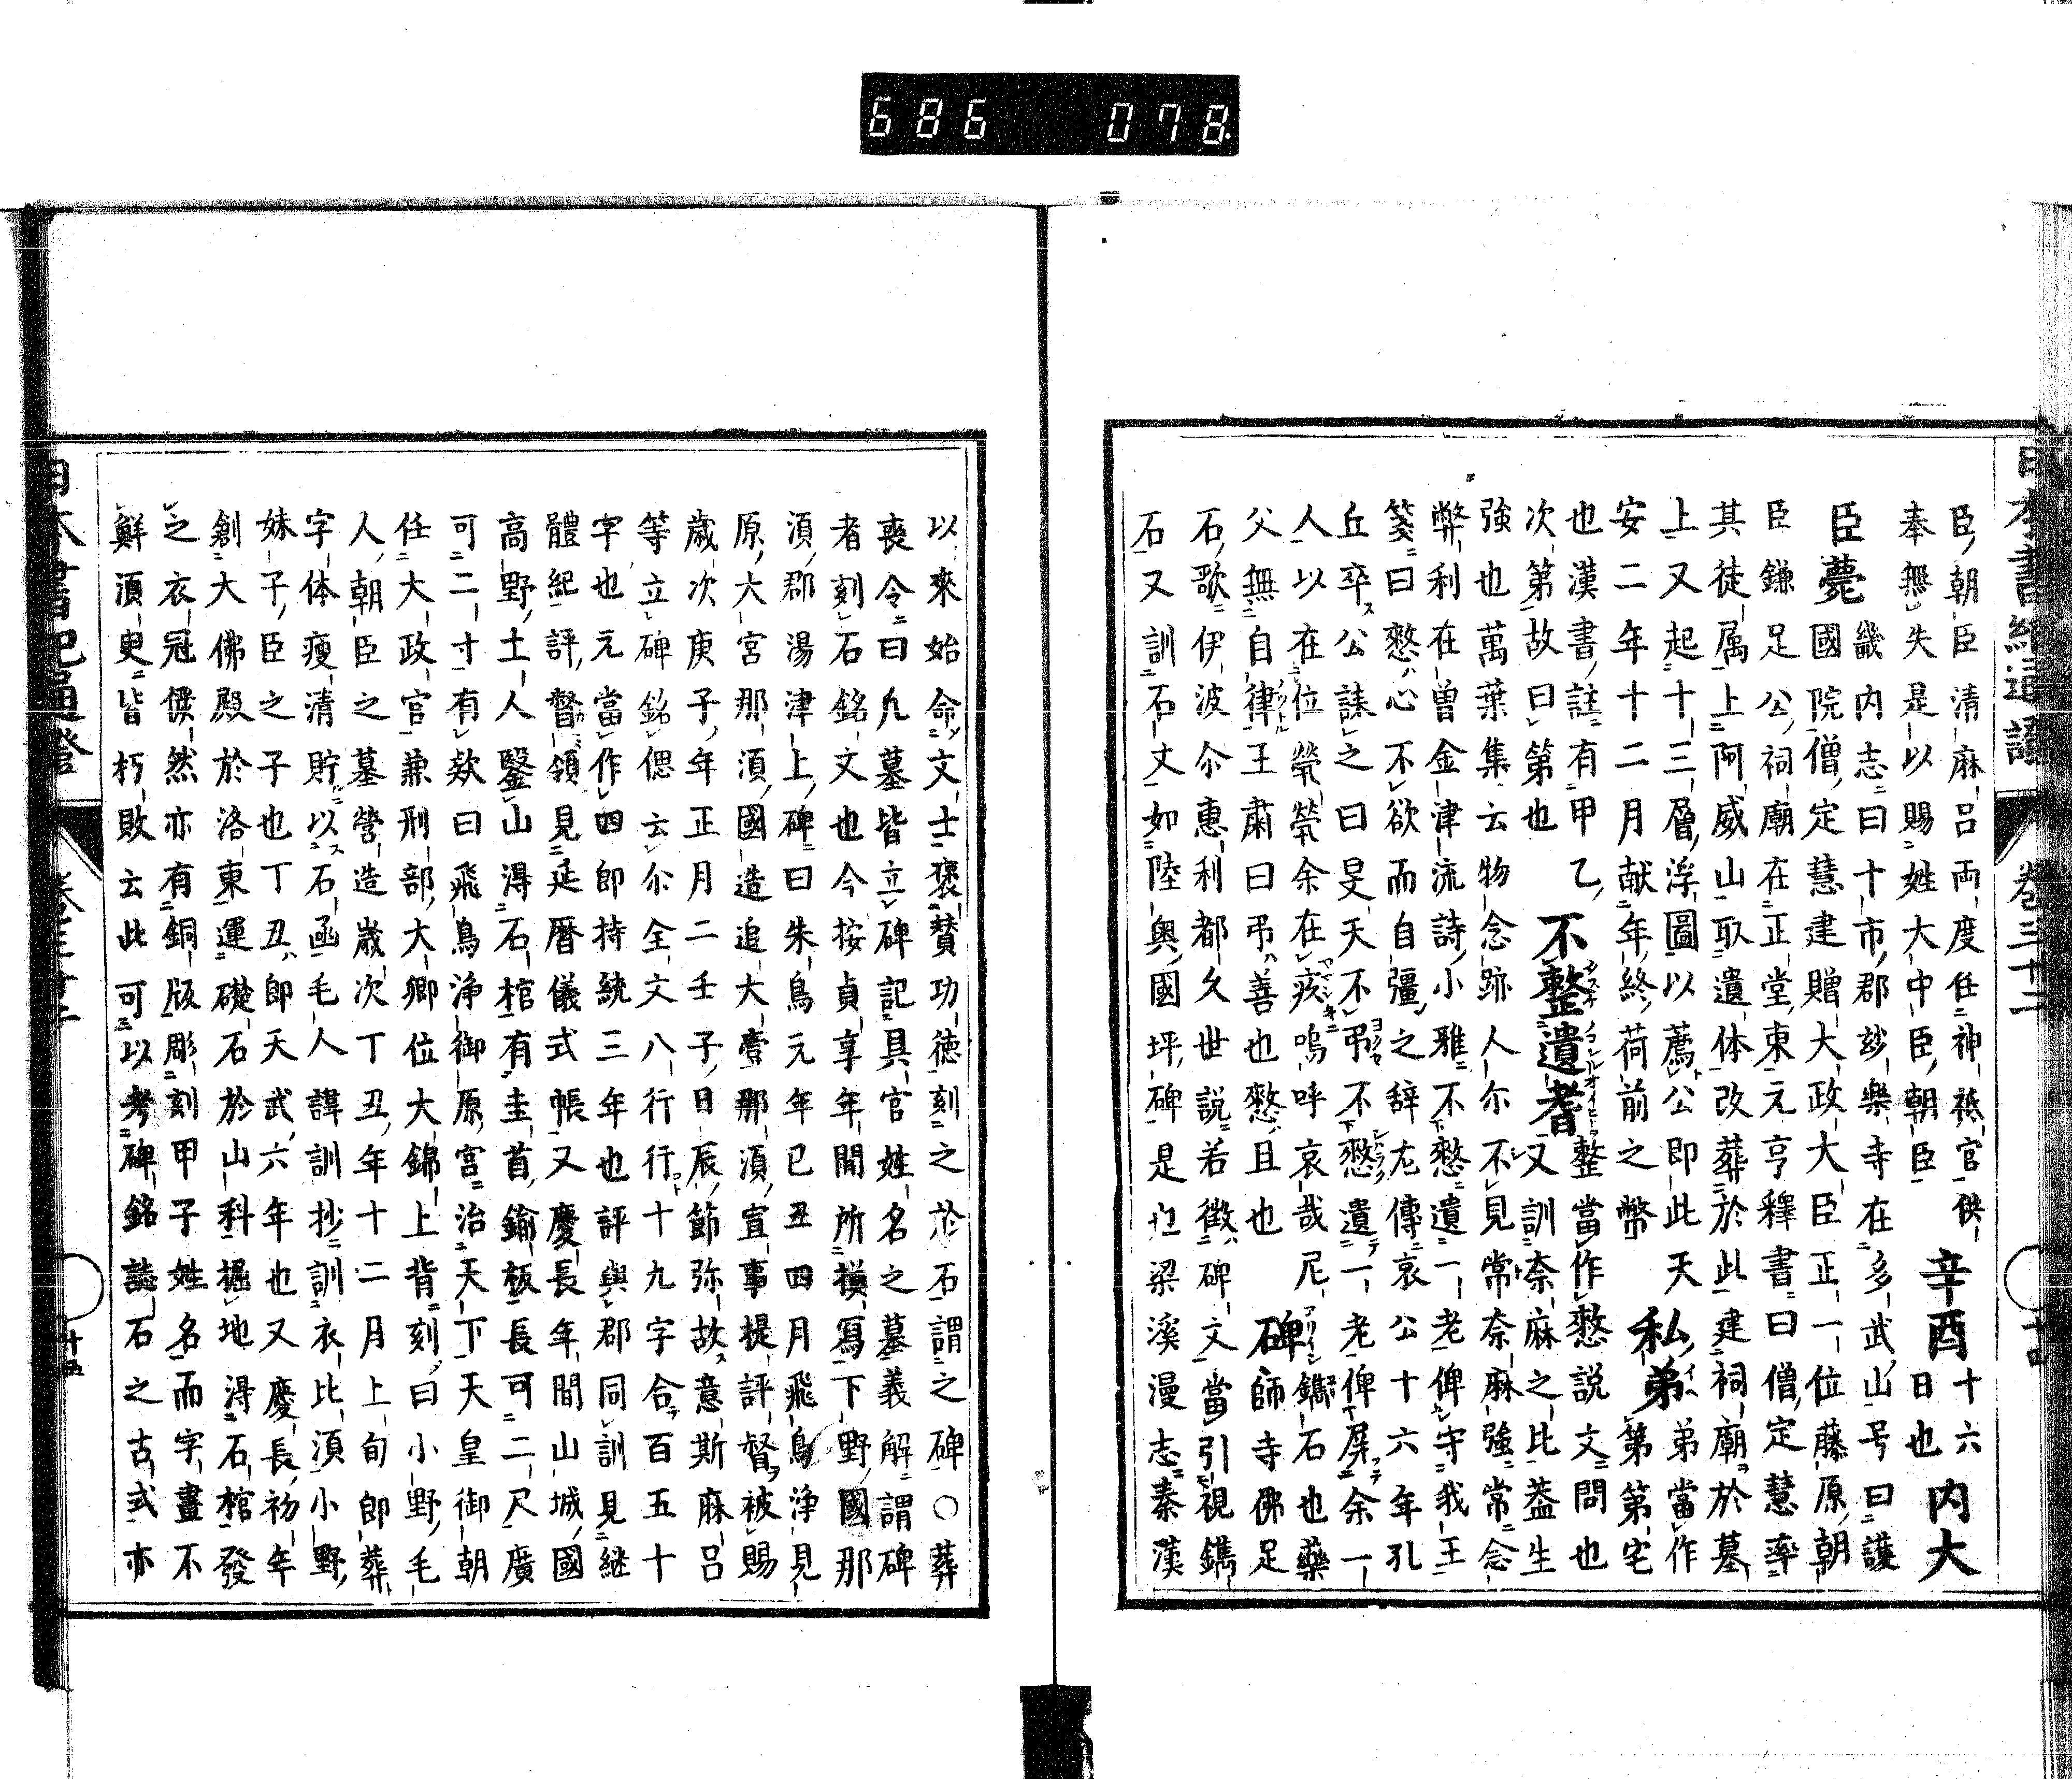 686 078
臣朝臣清麻呂両度任神祇官供
奉無失是以賜姓大中臣朝臣 辛酉 十六日也 内大
臣薨 畿内志曰十市郡玅樂寺在多武山号曰護
國院僧定慧建贈大政大臣正一位藤原朝
臣鎌足公祠廟在正堂東元亨釋書曰僧定慧率
其徒属上阿威山取遺体改葬於此建祠廟於墓
上又起十三層浮圖以薦公即此天
安二年十二月献年終荷前之幣 私弟 弟當作第第宅
也漢書註有甲乙
次第故曰第也 不整遺耆 整當作憗説文問也
又訓奈麻之比盖生
強也萬葉集云物念跡人尓不見常奈麻強常念
弊利在曽金津流詩小雅不憗遺一老俾守我王
箋曰憗心不欲而自彊之辞左傳哀公十六年孔
丘卒公誄之曰旻天不弔不憗遺一老俾屏余一
人以在位煢煢余在疚嗚呼哀哉尼
父無自律王肅曰弔善也憗且也 碑 鐫石也藥
師寺佛足
石歌伊波尓惠利都久世説若徴碑文當引視鐫
石又訓石丈如陸奥國坪碑是也梁溪漫志秦漢
以來始命文士褒賛功徳刻之於石謂之碑○葬
喪令曰凡墓皆立碑記具官姓名之墓義解謂碑
者刻石銘文也今按貞享年間所模寫下野國那
湏郡湯津上碑曰朱鳥元年已丑四月飛鳥浄見
原大宮那湏國造追大壹那湏宣事提評督被賜
歳次庚子年正月二壬子日辰節弥故意斯麻呂
等立碑銘偲云尓全文八行行十九字合百五十
字也元當作四即持統三年也評與郡同訓見継
體紀評督領見延暦儀式帳又慶長年間山城國
高野土人鑿山淂石棺有圭首鍮板長可二尺廣
可二寸有欸曰飛鳥浄御原宮治天下天皇御朝
任大政官兼刑部大卿位大錦上背刻曰小野毛
人朝臣之墓營造歳次丁丑年十二月上旬即葬
字体瘦清貯以石函毛人諱訓抄訓衣比湏小野
妹子臣之子也丁丑即天武六年也又慶長初年
創大佛殿於洛東運礎石於山科掘地淂石棺發
之衣冠儼然亦有銅版彫刻甲子姓名而字畫不
鮮湏臾皆朽敗云此可以考碑銘誌石之古式亦
日本書紀通證 卷三十二 十四
日本書紀通證 卷三十二 十五